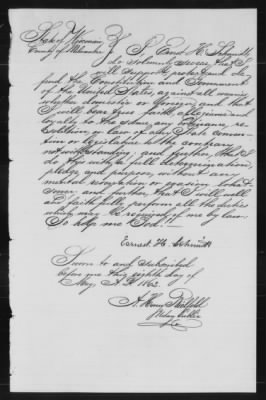 State of Wisconsin
County of Milwaukee } I, Ernst H. Schmidt
do solemnly swear that I
will support, protect and de
fend the Constitution and Government
of the United States, against all enemies
whether domestic or foreign, and that
I will bear true faith, allegiance and
loyalty to the same, any ordinance, re
solution or law of any State conven
tion or legislature to the contrary
notwithstanding; and further, that I
do this with a full determination,
pledge, and purpose, without any
mental reservation or evasion what
soever; and further that I will well
and faithfully perform all the duties
which may be required of me by law.
So help me God!!
Earnst H. Schmidt
Sworn to and subscribed
before me this eighth day of
May A.D. 1862.
A. Henry
Notary Public